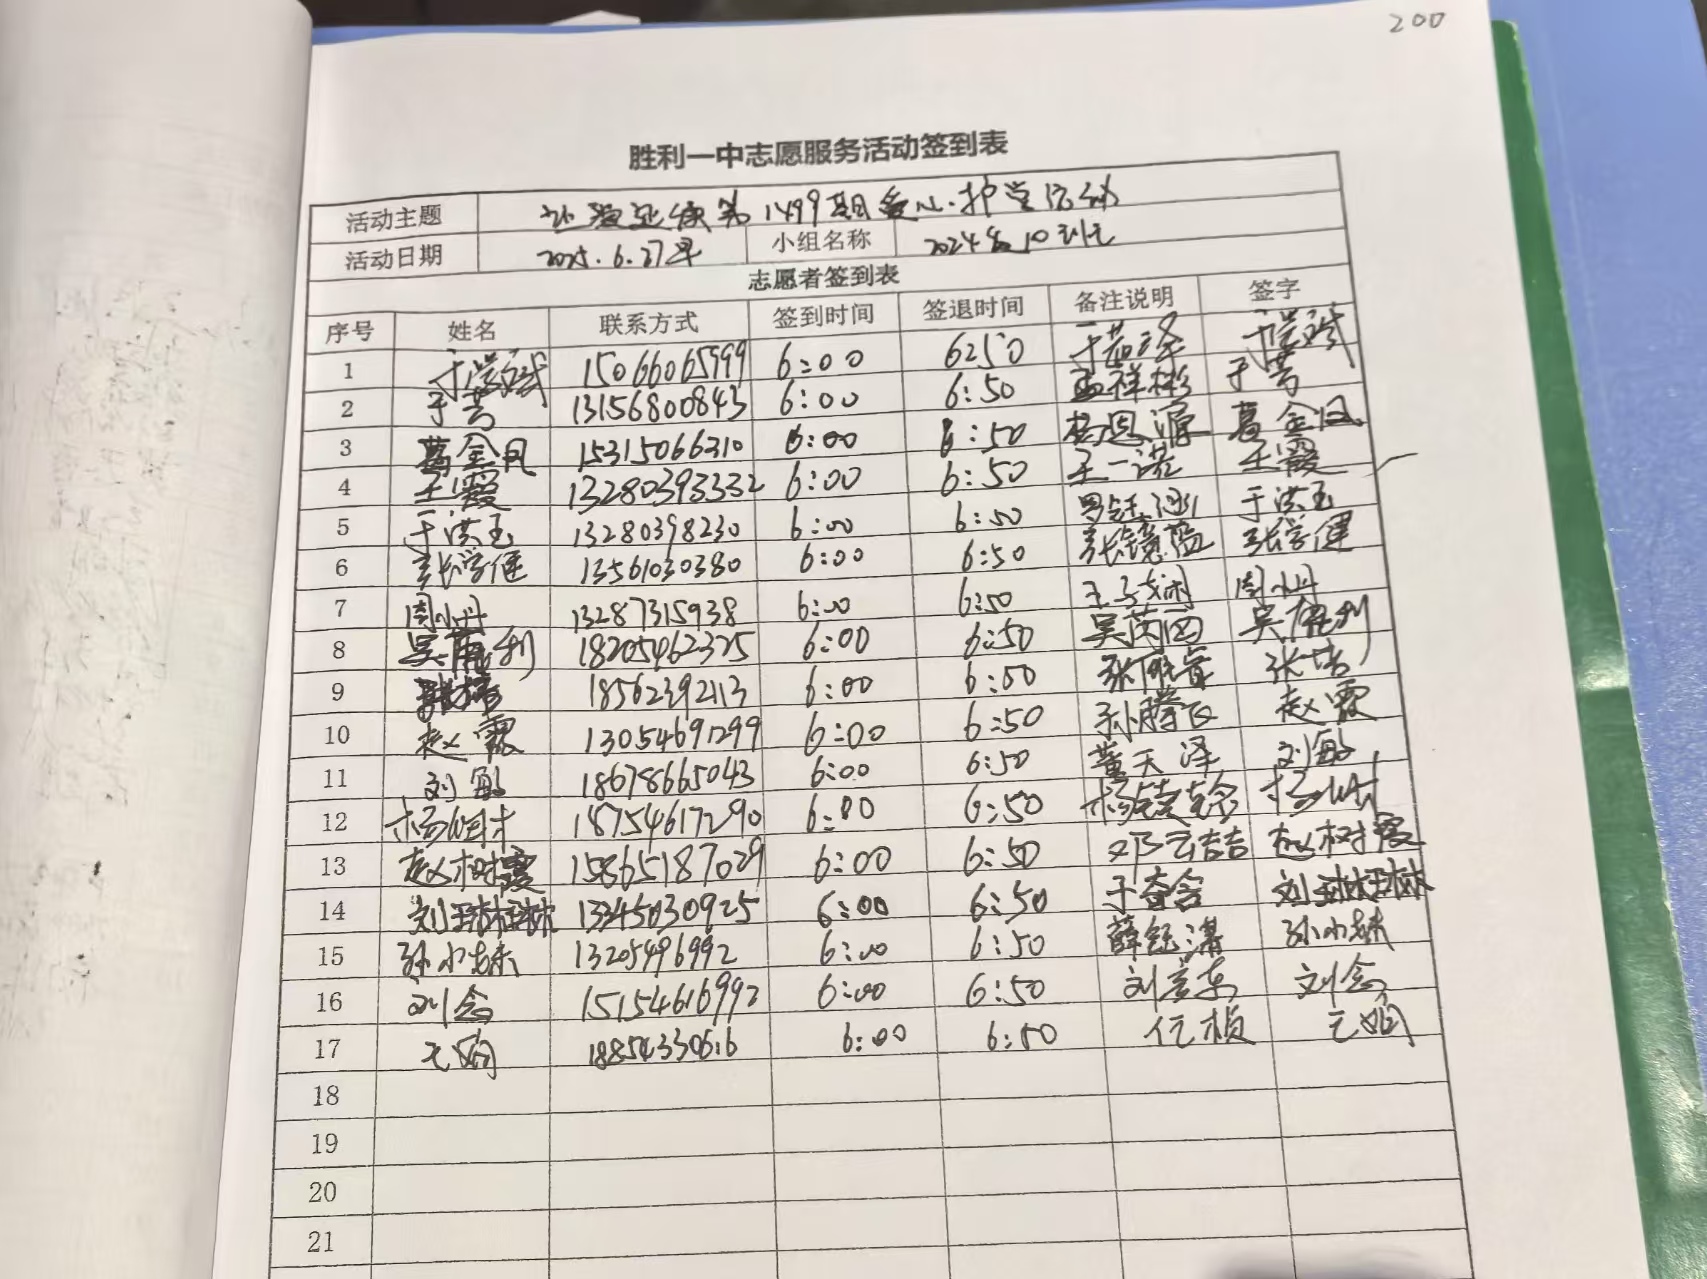 200
胜利一中志愿服务活动签到表
活动主题 让爱延续第1499期爱心护学活动
活动日期 2025.6.27早 小组名称 2024级10班
志愿者签到表
序号 姓名 联系方式 签到时间 签退时间 备注说明 签字
1 15066065999 6:00 6:50
2 于芳 13156800843 6:00 6:50 孟祥彬 于芳
3 葛金凤 15315066310 6:00 6:50 杨恩源 葛金凤
4 王霞 13280393332 6:00 6:50 王一诺 王霞
5 于洪玉 13280398230 6:00 6:50 于洪玉
6 张学健 13561030380 6:00 6:50 张学健
7 周小丹 13287315938 6:00 6:50 周小丹
8 18205462325 6:00 6:50
9 18562392113 6:00 6:50
10 赵霞 13054691299 6:00 6:50 孙腾飞 赵霞
11 刘敏 18678665043 6:00 6:50 董天泽 刘敏
12 18754617290 6:00 6:50
13 赵树霞 15865187029 6:00 6:50 邓云喆 赵树霞
14 刘琳琳 13345030925 6:00 6:50 刘琳琳
15 孙小妹 13205496992 6:00 6:50 孙小妹
16 刘念 15154616992 6:00 6:50 刘彦东 刘念
17 18854330616 6:00 6:50 任桢
18
19
20
21